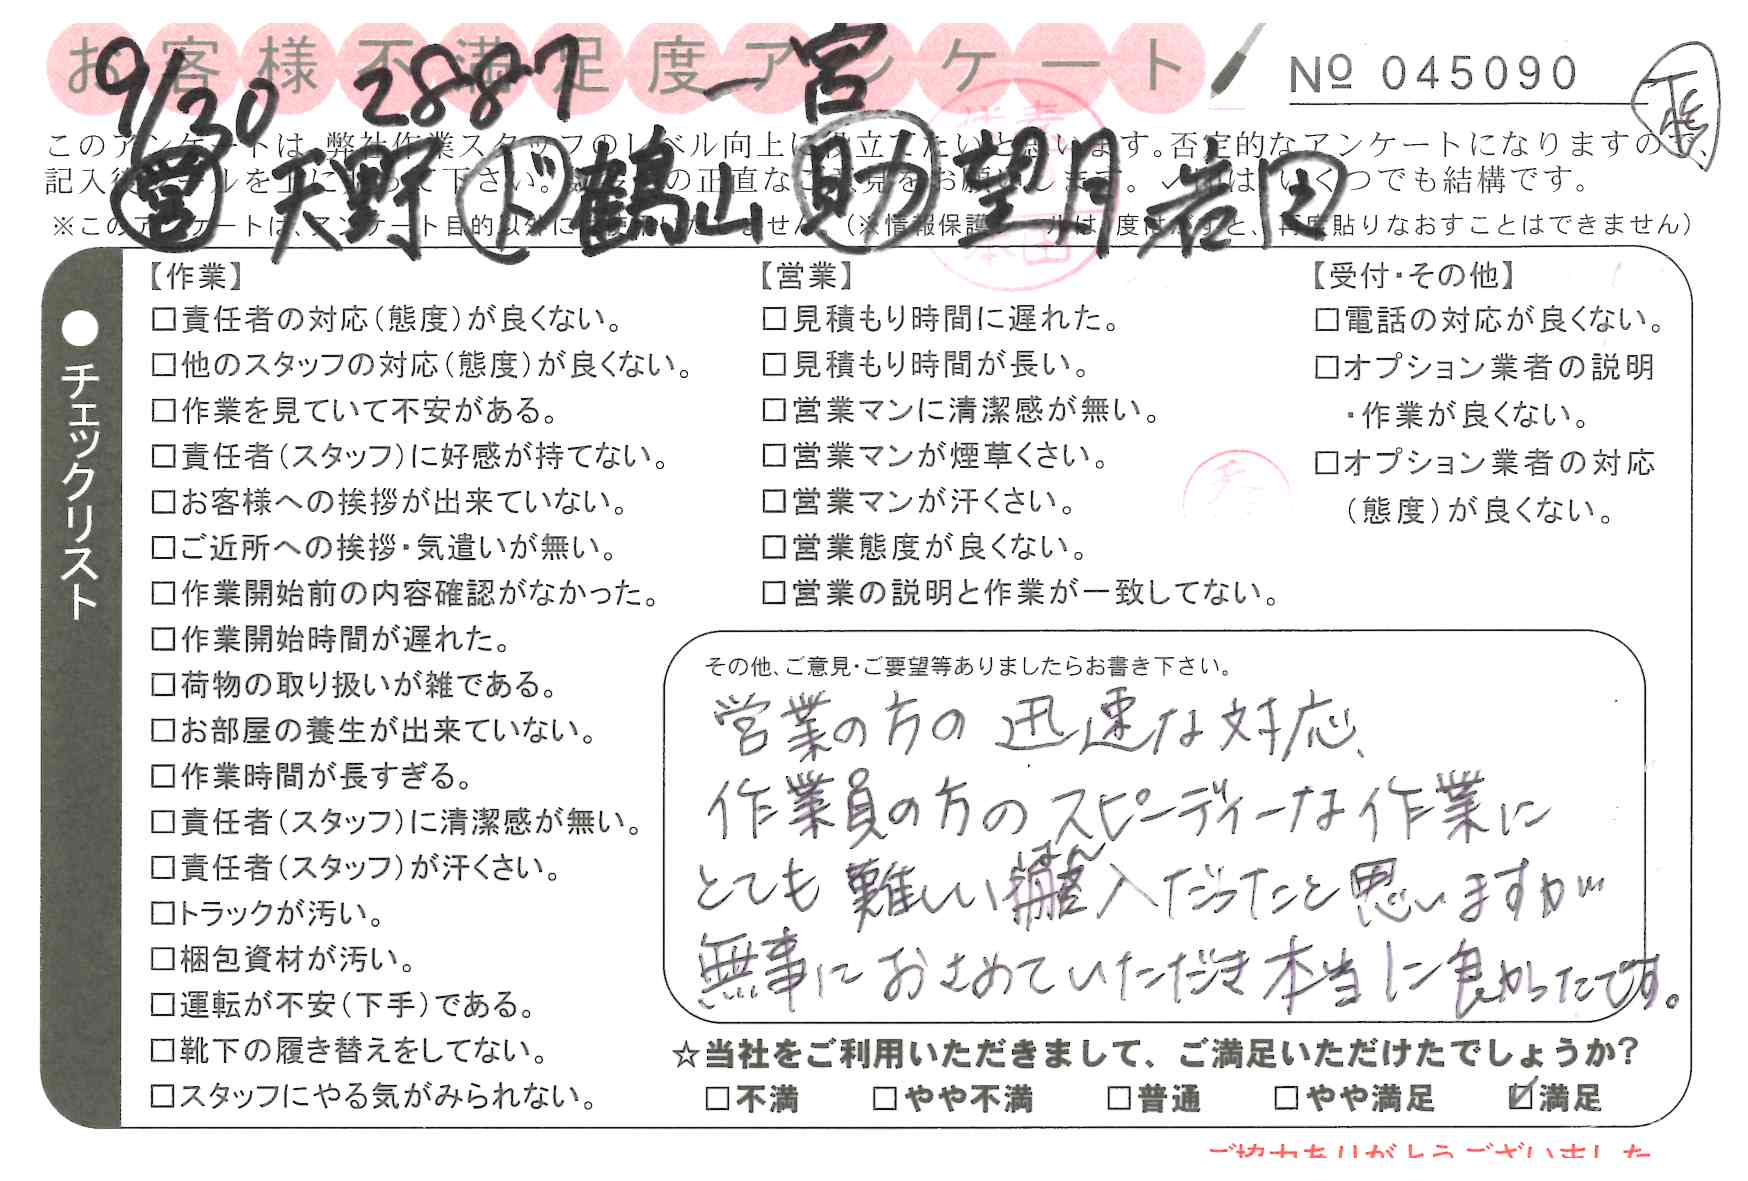 お客様不満足度アンケート
№ 045090
9/30 2887 一宮
営 天野 ド 鶴山 助 望月 岩田
このアンケートは、弊社作業スタッフのレベル向上に役立てたいと思います。否定的なアンケートになりますので、
記入後シールを上に貼って下さい。の正直なご意見をお願いします。✓印は、いくつでも結構です。
※このアンケートは、アンケート目的以外には使用いたしません。(※情報保護シールは1度はがすと、再度貼りなおすことはできません)
●チェックリスト
【作業】
□責任者の対応(態度)が良くない。
□他のスタッフの対応(態度)が良くない。
□作業を見ていて不安がある。
□責任者(スタッフ)に好感が持てない。
□お客様への挨拶が出来ていない。
□ご近所への挨拶・気遣いが無い。
□作業開始前の内容確認がなかった。
□作業開始時間が遅れた。
□荷物の取り扱いが雑である。
□お部屋の養生が出来ていない。
□作業時間が長すぎる。
□責任者(スタッフ)に清潔感が無い。
□責任者(スタッフ)が汗くさい。
□トラックが汚い。
□梱包資材が汚い。
□運転が不安(下手)である。
□靴下の履き替えをしてない。
□スタッフにやる気がみられない。
【営業】
□見積もり時間に遅れた。
□見積もり時間が長い。
□営業マンに清潔感が無い。
□営業マンが煙草くさい。
□営業マンが汗くさい。
□営業態度が良くない。
□営業の説明と作業が一致してない。
【受付・その他】
□電話の対応が良くない。
□オプション業者の説明
・作業が良くない。
□オプション業者の対応
(態度)が良くない。
その他、ご意見・ご要望等ありましたらお書き下さい。
営業の方の迅速な対応、
作業員の方のスピーディーな作業に
はん
とても難しい入だったと思いますが
無事におさめていただき本当に良かったです。
☆当社をご利用いただきまして、ご満足いただけたでしょうか?
□不満 □やや不満 □普通 □やや満足 ☑満足
ご協力ありがとうございました